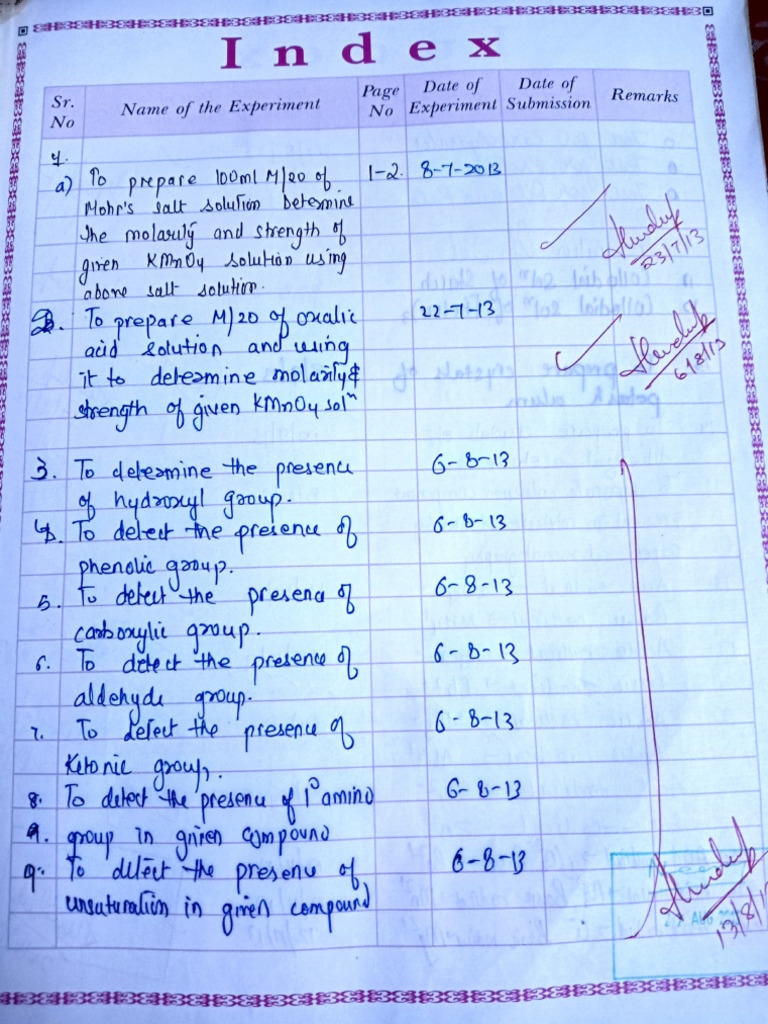 Index
Sr. No Name of the Experiment Page No Date of Experiment Date of Submission Remarks
1.
a) To prepare 100ml M/20 of 1-2. 8-7-2013
Mohr's salt solution Determine
the molarity and strength of
given KMnO4 solution using 23/7/13
above salt solution.
2. To prepare M/20 of oxalic 22-7-13
acid solution and using
it to determine molarity & 6/8/13
strength of given KMnO4 solⁿ
3. To determine the presence 6-8-13
of hydroxyl group.
4. To detect the presence of 6-8-13
phenolic group.
5. To detect the presence of 6-8-13
carboxylic group.
6. To detect the presence of 6-8-13
aldehyde group.
7. To detect the presence of 6-8-13
Ketonic group.
8. To detect the presence of 1° amino 6-8-13
9. group in given compound
9. To detect the presence of 6-8-13
unsaturation in given compound
13/8/1
AUG